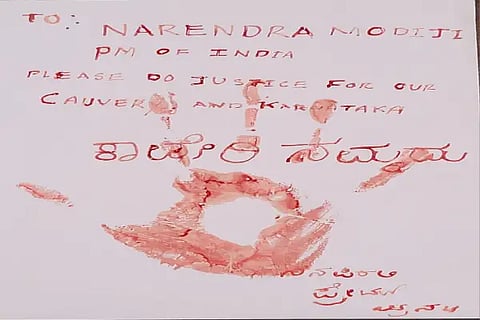 TO: NARENDRA MODIJI
PM OF INDIA
PLEASE DO JUSTICE FOR OUR
CAUVERY AND KARNATAKA
ಕಾವೇರಿ ನಮ್ಮದು